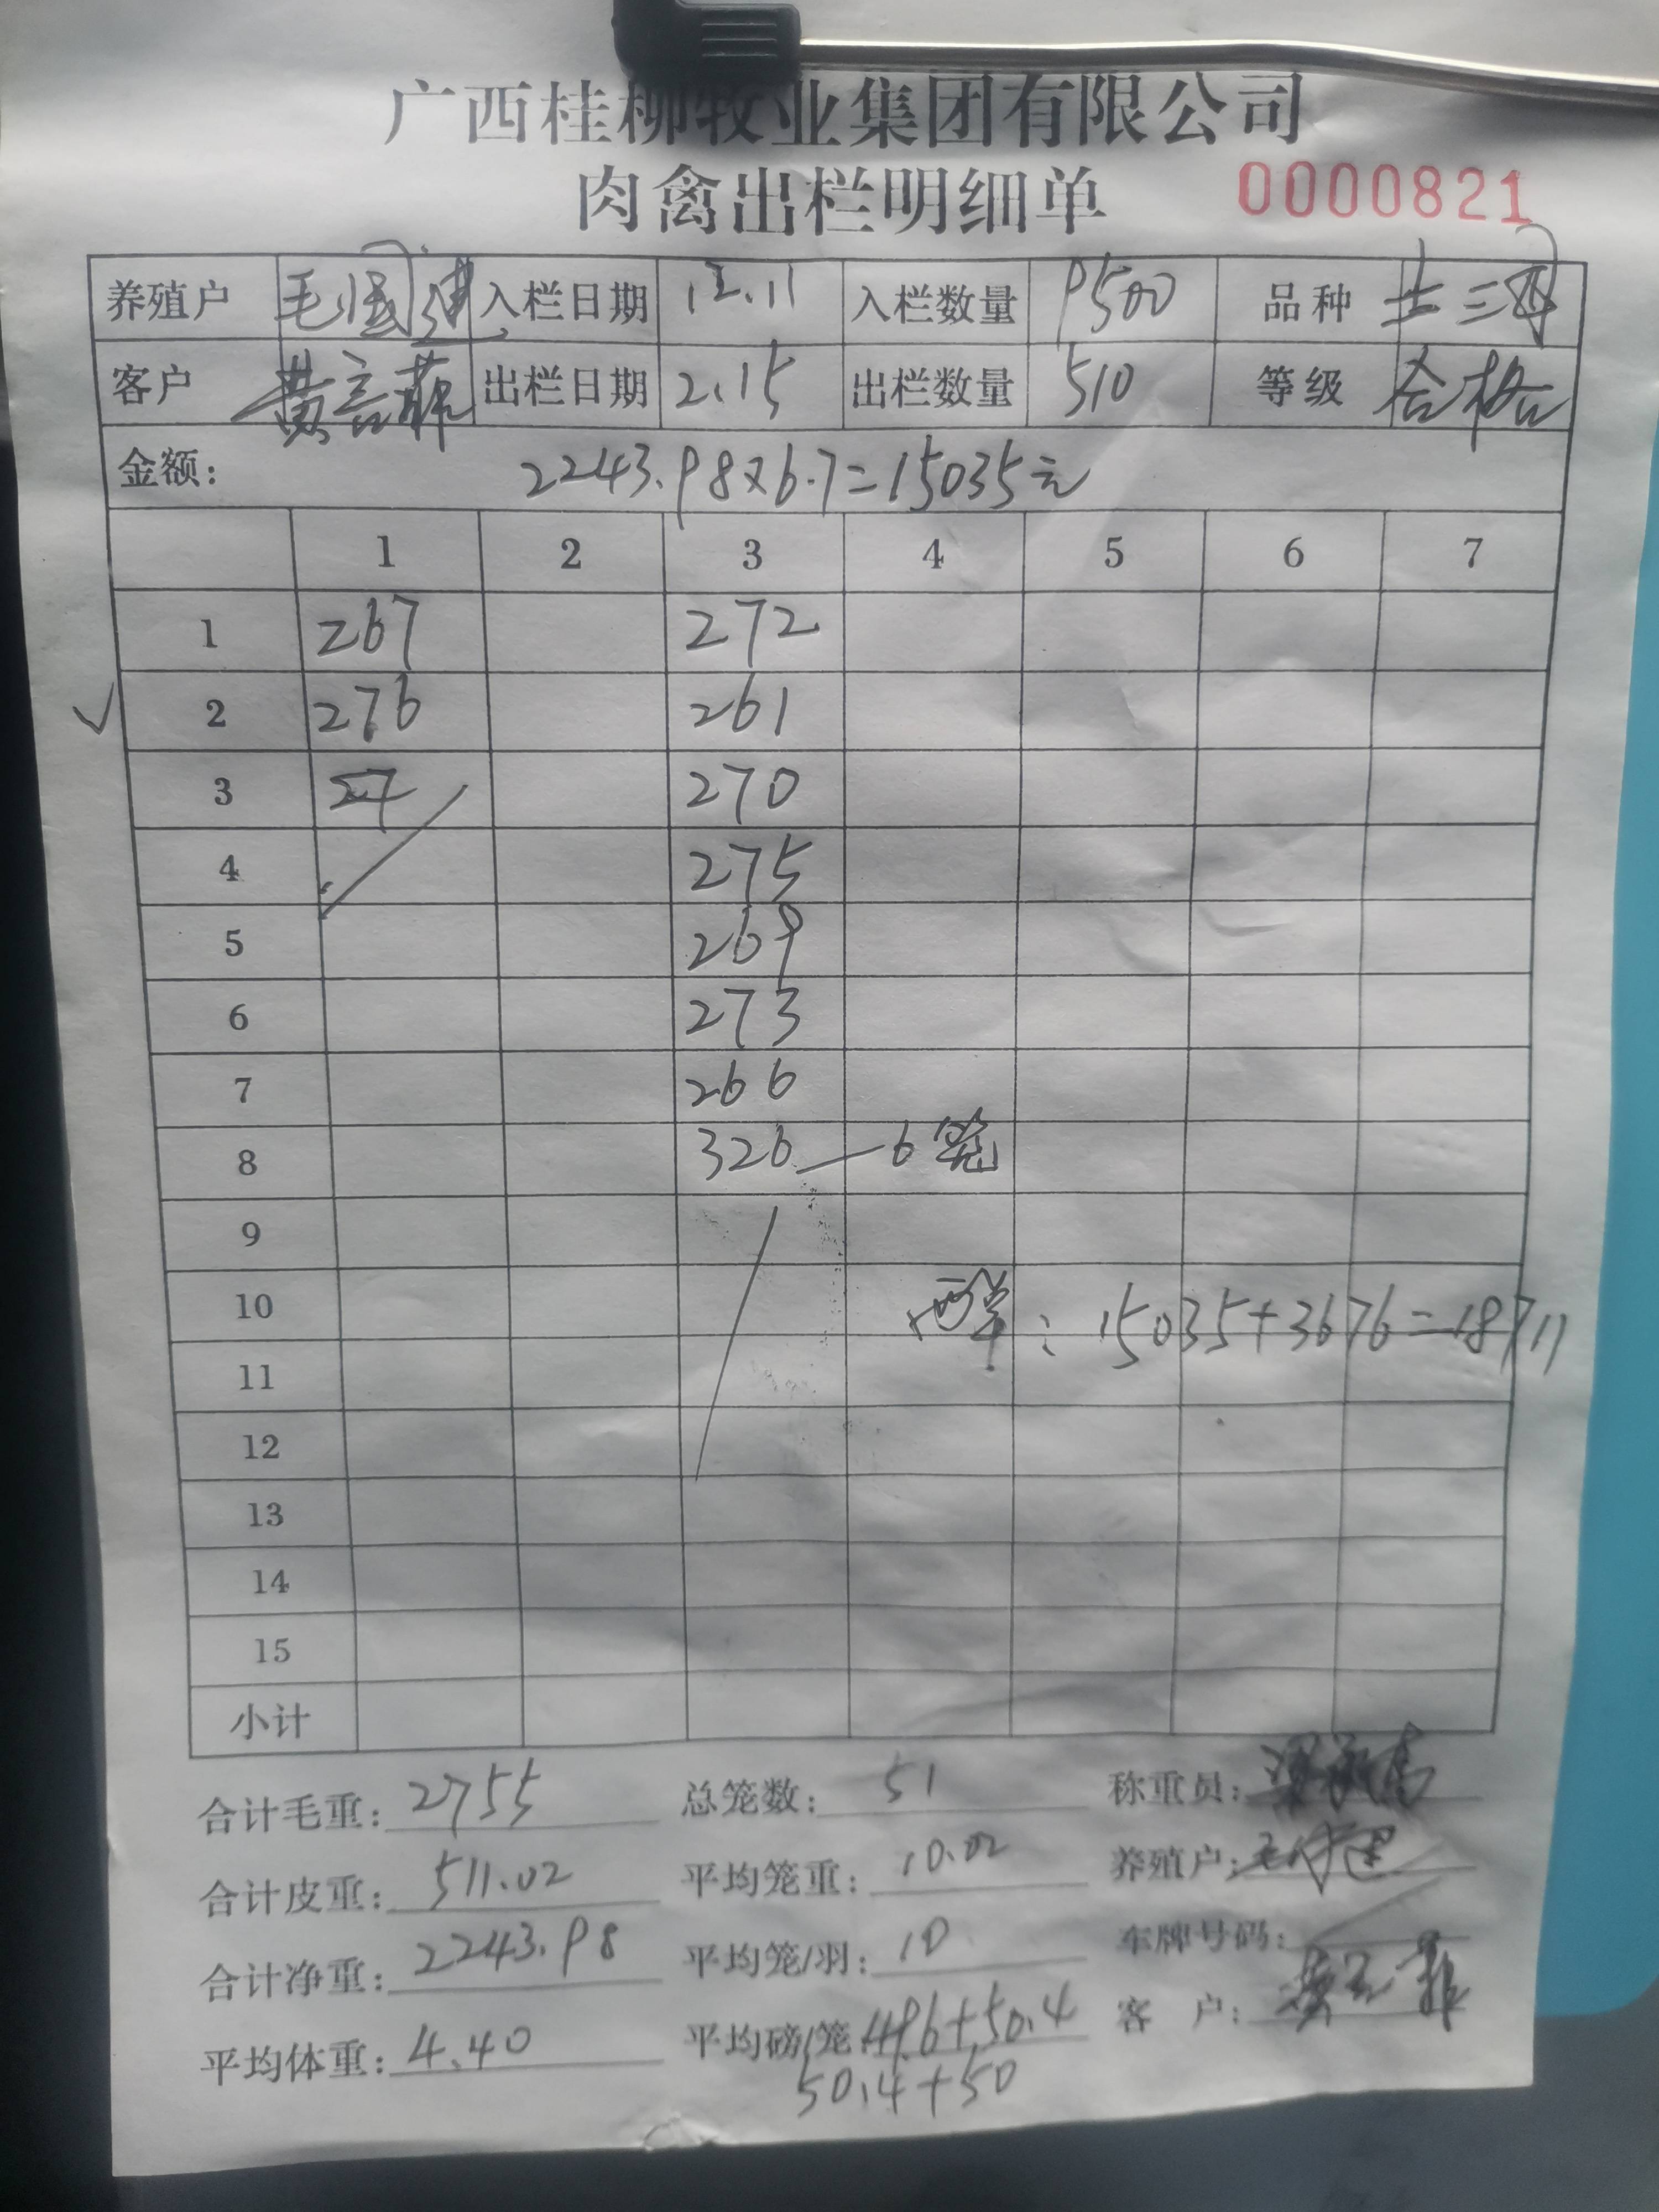 广西桂柳牧业集团有限公司
肉禽出栏明细单 0000821
养殖户 毛 入栏日期 12.11 入栏数量 9500 品种 土三
客户 黄 菲 出栏日期 2.15 出栏数量 510 等级 合格
金额: 2243.98×6.7=15035元
1 2 3 4 5 6 7
1 267 272
2 276 261
3 270
4 275
5 269
6 273
7 266
8 326—6笼
9
10 两单: 15035+3676=18711
11
12
13
14
15
小计
合计毛重: 2755 总笼数: 51 称重员:
合计皮重: 511.02 平均笼重: 10.02 养殖户:
合计净重: 2243.98 平均笼/羽: 10 车牌号码:
平均体重: 4.40 平均磅/笼: 49.6+50.4 客 户:
50.4+50